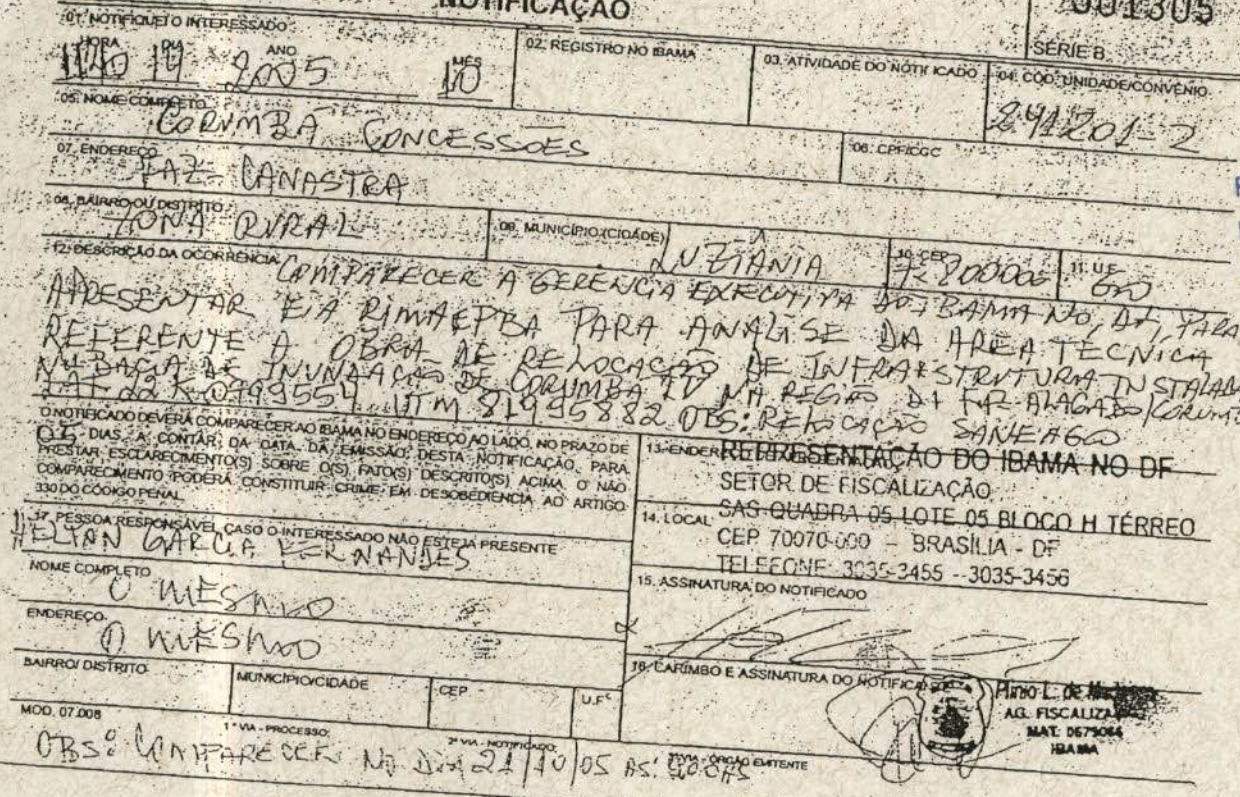 NOTIFICAÇÃO
001305
SÉRIE B
01. NOTIFIQUEI O INTERESSADO
HORA DIA ANO MÊS
2005 10
02. REGISTRO NO IBAMA
03. ATIVIDADE DO NOTIFICADO
04. COD. UNIDADE/CONVÊNIO
241201-2
05. NOME COMPLETO
CORUMBA CONCESSOES
06. CPF/CGC
07. ENDEREÇO
FAZ- CANASTRA
08. BAIRRO OU DISTRITO
ZONA RURAL
09. MUNICÍPIO (CIDADE)
LUZIÂNIA
10. CEP
11. U.F.
GO
12. DESCRIÇÃO DA OCORRÊNCIA
COMPARECER A GERÊNCIA EXECUTIVA DO IBAMA NO, DF, PARA
APRESENTAR EIA RIMA E PBA PARA ANALISE DA AREA TECNICA
REFERENTE A OBRA DE RELOCAÇÃO DE INFRAESTRUTURA INSTALADA
NA BACIA DE INUNDAÇÃO DE CORUMBA IV NA REGIÃO DA FAZ- ALAGADO/CORUMBA
22 K-0799554 UTM 81995882 OBS: RELOCAÇÃO SANEAGO
O NOTIFICADO DEVERÁ COMPARECER AO IBAMA NO ENDEREÇO AO LADO, NO PRAZO DE
05 DIAS, A CONTAR DA DATA DA EMISSÃO DESTA NOTIFICAÇÃO, PARA
PRESTAR ESCLARECIMENTO(S) SOBRE O(S) FATO(S) DESCRITO(S) ACIMA. O NÃO
COMPARECIMENTO PODERÁ CONSTITUIR CRIME EM DESOBEDIÊNCIA AO ARTIGO
330 DO CÓDIGO PENAL.
13. ENDEREÇO
REPRESENTAÇÃO DO IBAMA NO DF
SETOR DE FISCALIZAÇÃO
SAS QUADRA 05 LOTE 05 BLOCO H TÉRREO
14. LOCAL
CEP 70070-000 - BRASÍLIA - DF
TELEFONE: 3035-3455 - 3035-3456
17. PESSOA RESPONSÁVEL, CASO O INTERESSADO NÃO ESTEJA PRESENTE
HELTAN GARCIA FERNANDES
NOME COMPLETO
O MESMO
ENDEREÇO
O MESMO
15. ASSINATURA DO NOTIFICADO
BAIRRO/ DISTRITO
MUNICÍPIO/CIDADE
CEP
U.F.
16. CARIMBO E ASSINATURA DO NOTIFICANTE
Plinio L. de
AG. FISCALIZA
MAT. 0679064
IBAMA
MOD. 07.008
1ª VIA - PROCESSO
2ª VIA - NOTIFICADO
3ª VIA - ÓRGÃO EMITENTE
OBS: COMPARECER NO DIA 21/10/05 AS: